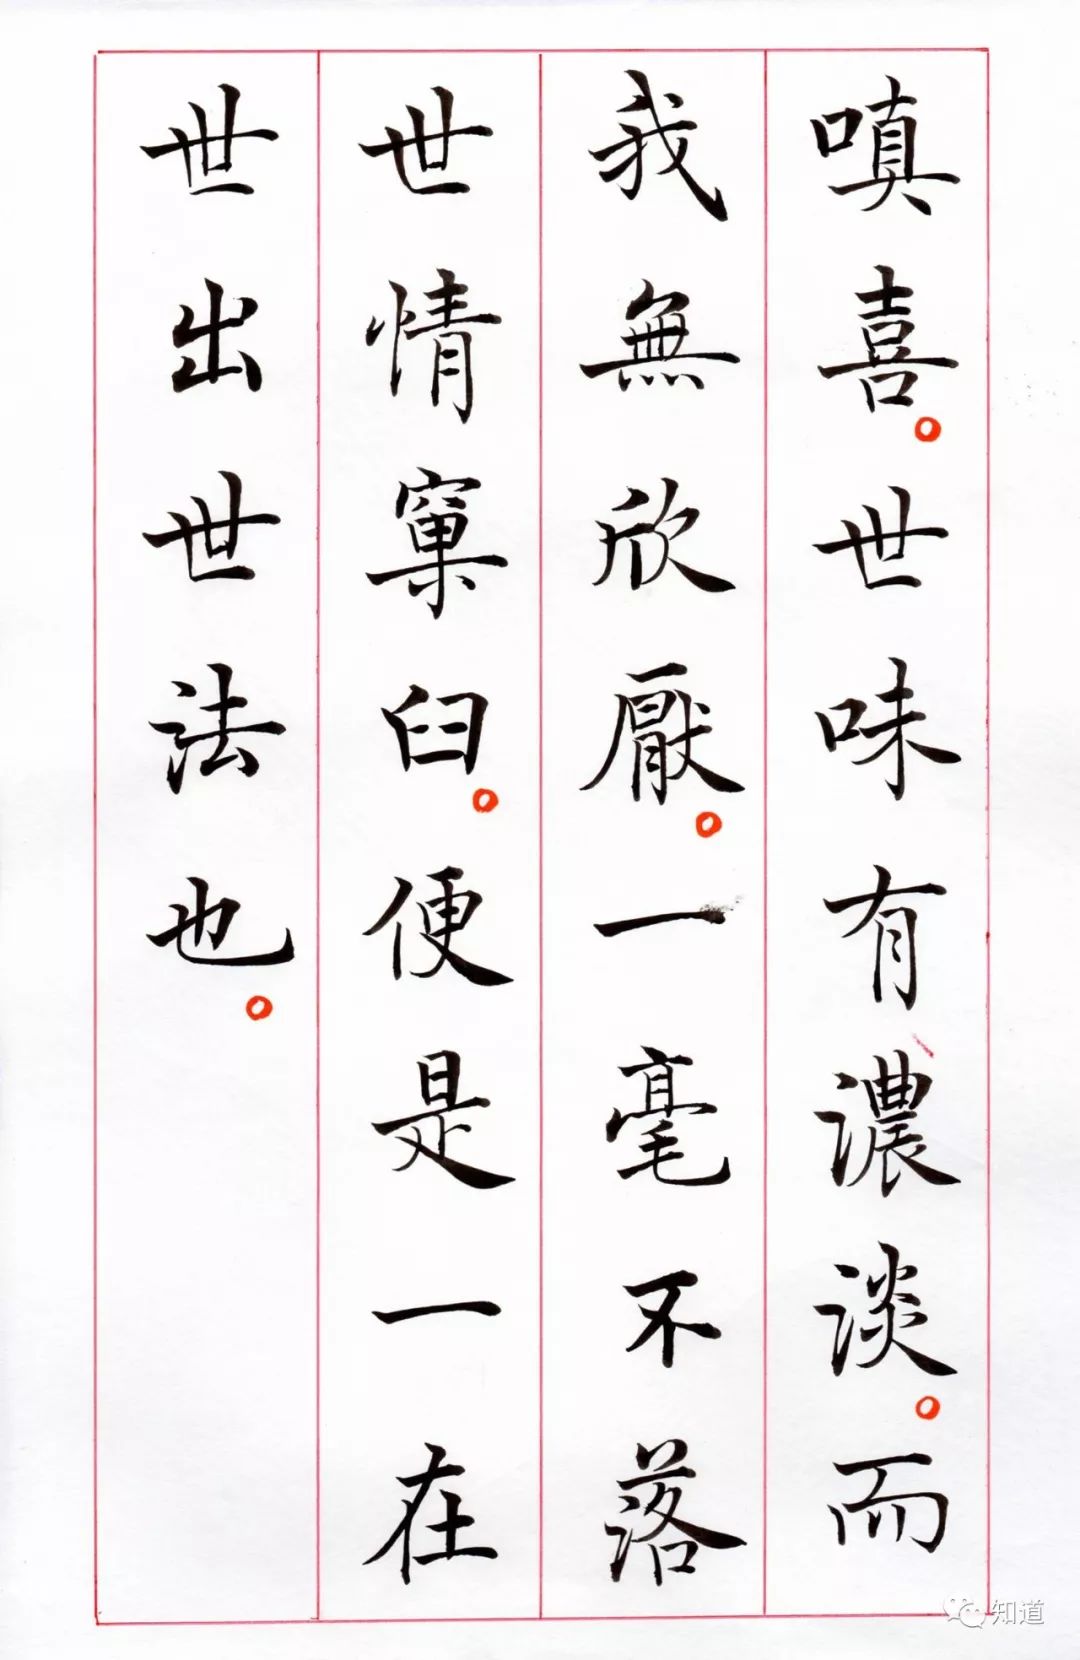 嗔喜。世味有濃淡。而
我無欣厭。一毫不落
世情窠臼。便是一在
世出世法也。
知道